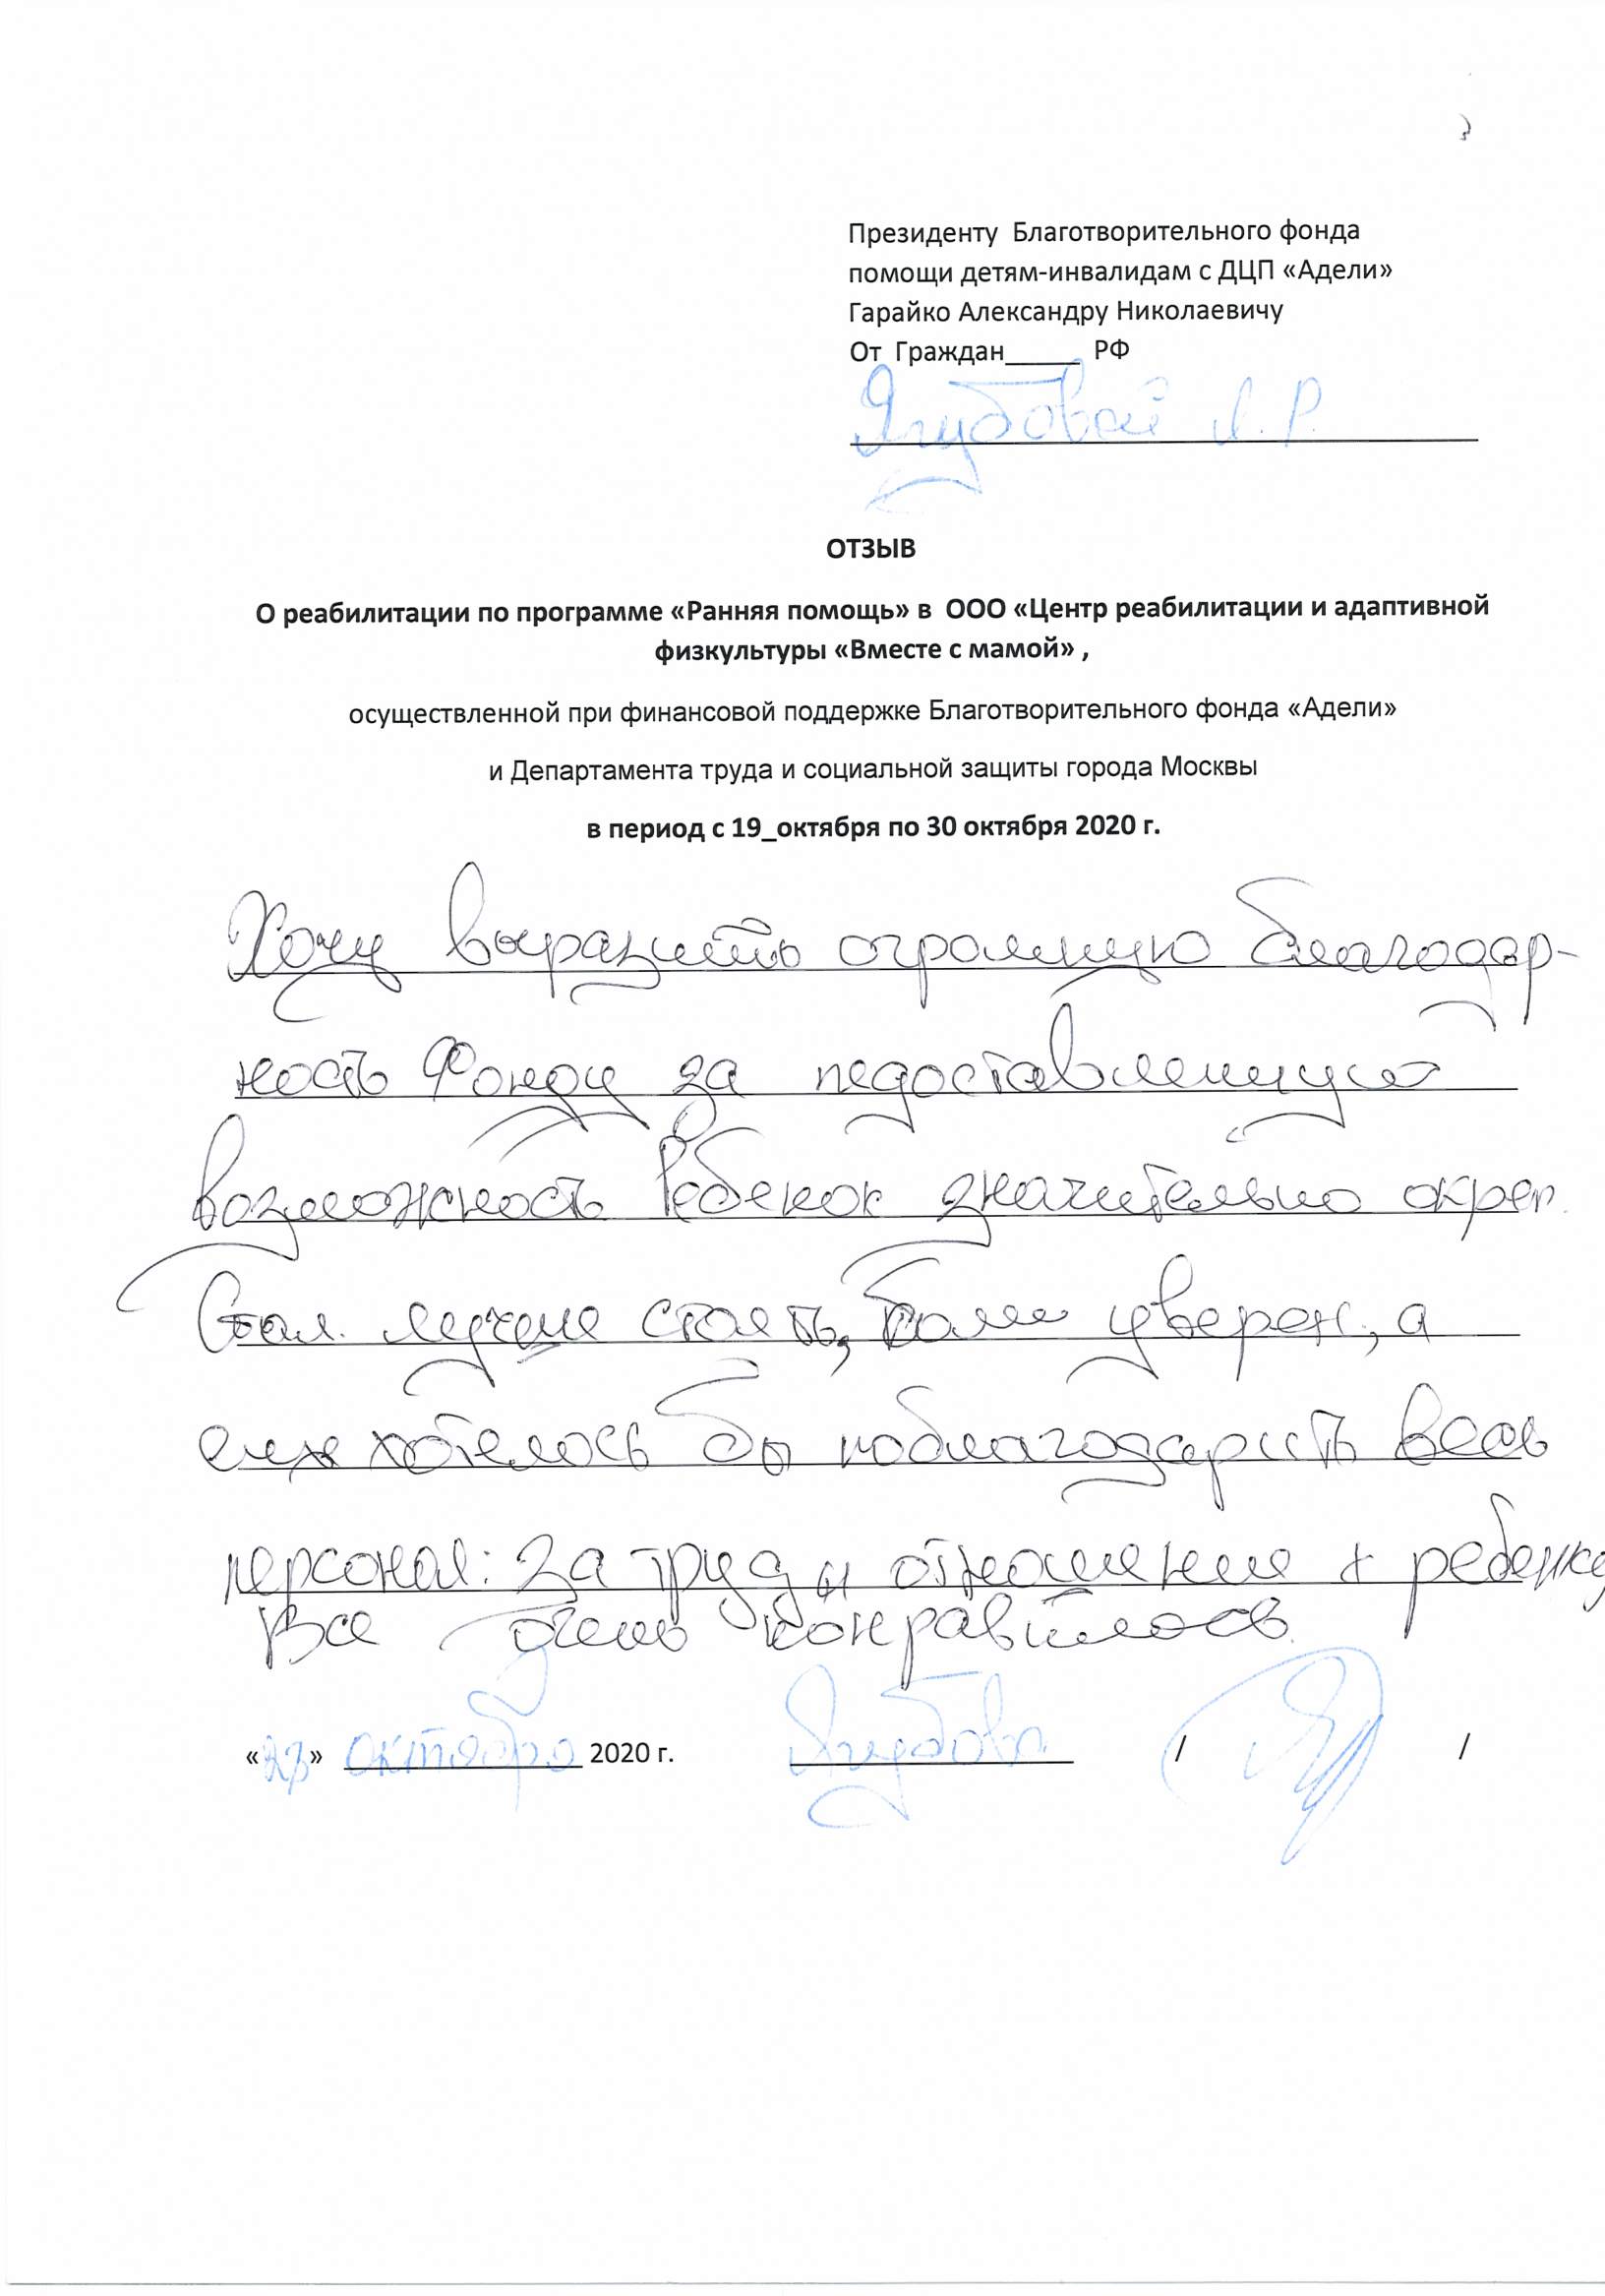 Президенту Благотворительного фонда
помощи детям-инвалидам с ДЦП «Адели»
Гарайко Александру Николаевичу
От Граждан______ РФ
Ягубовой Л. Р.
ОТЗЫВ
О реабилитации по программе «Ранняя помощь» в ООО «Центр реабилитации и адаптивной
физкультуры «Вместе с мамой» ,
осуществленной при финансовой поддержке Благотворительного фонда «Адели»
и Департамента труда и социальной защиты города Москвы
в период с 19_октября по 30 октября 2020 г.
Хочу выразить огромную благодар-
ность Фонду за педоставленную
возможность Ребенок значительно окреп.
Стал. лучше стоять, более уверен, а
еще хотелось бы поблагодарить весь
персонал: за труд и отношения к ребенку
Все очень понравилось.
«23» октября 2020 г. Ягубова / /